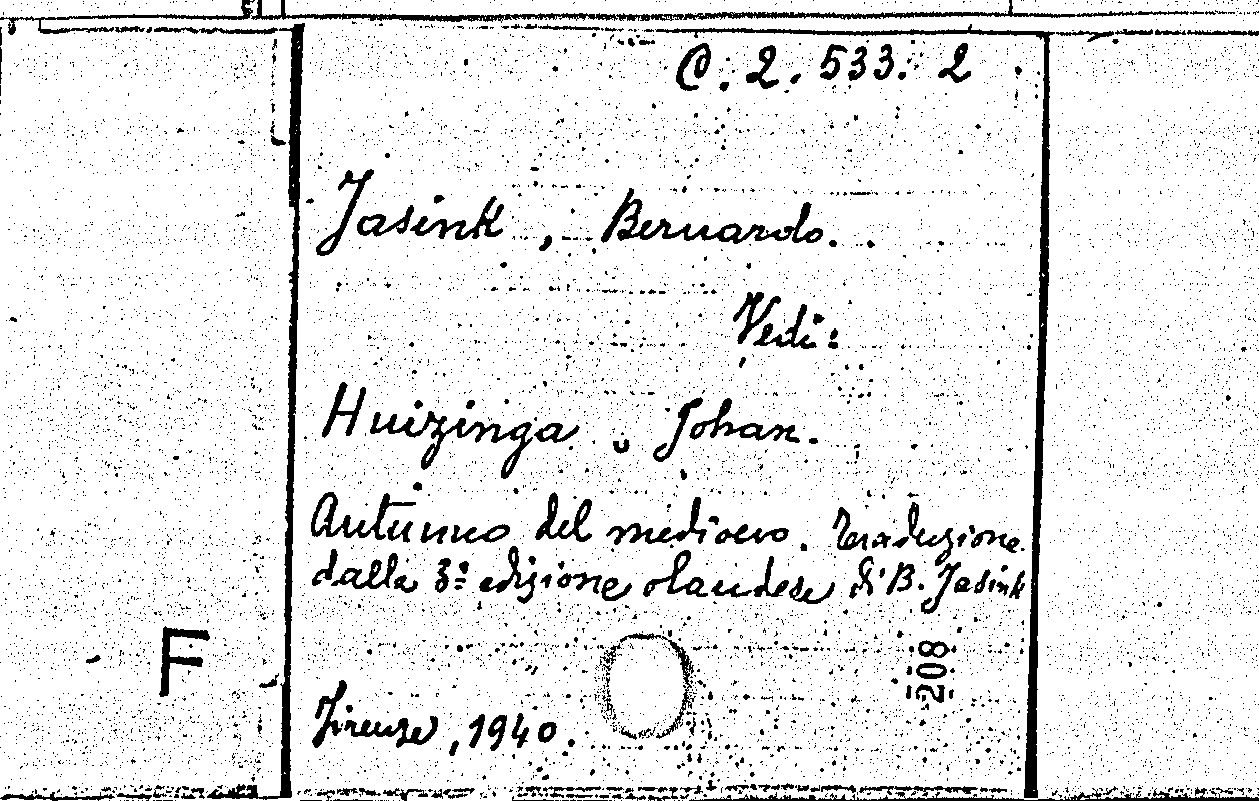 C. 2. 533. 2
Jasink, Bernardo.
Vedi:
Huizinga, Johan.
Autunno del medioevo. Traduzione
dalla 3ª edizione olandese di B. Jasink
F
208
Firenze, 1940.